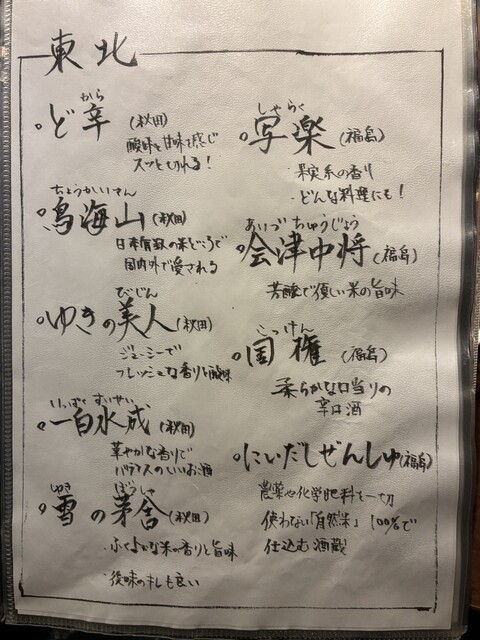 東北
から
ど辛(秋田)
酸味と甘味を感じ
スッと切れる!
ちょうかいさん
鳥海山(秋田)
日本有数の米どころで
国内外で愛される
びじん
ゆきの美人(秋田)
ジューシーで
フレッシュな香りと酸味
いっぱくすいせい
一白水成(秋田)
華やかな香りで
バランスのいいお酒
ゆき ぼうしゃ
雪の茅舎(秋田)
・ふくよかな米の香りと旨味
・後味のキレも良い
しゃらく
写楽(福島)
・果実系の香り
・どんな料理にも!
あいづちゅうじょう
会津中将(福島)
芳醇で優しい米の旨味
こっけん
国権(福島)
柔らかな口当りの
辛口酒
にいだしぜんしゅ(福島)
農薬や化学肥料を一切
使わない「自然米」100%で
仕込む酒蔵